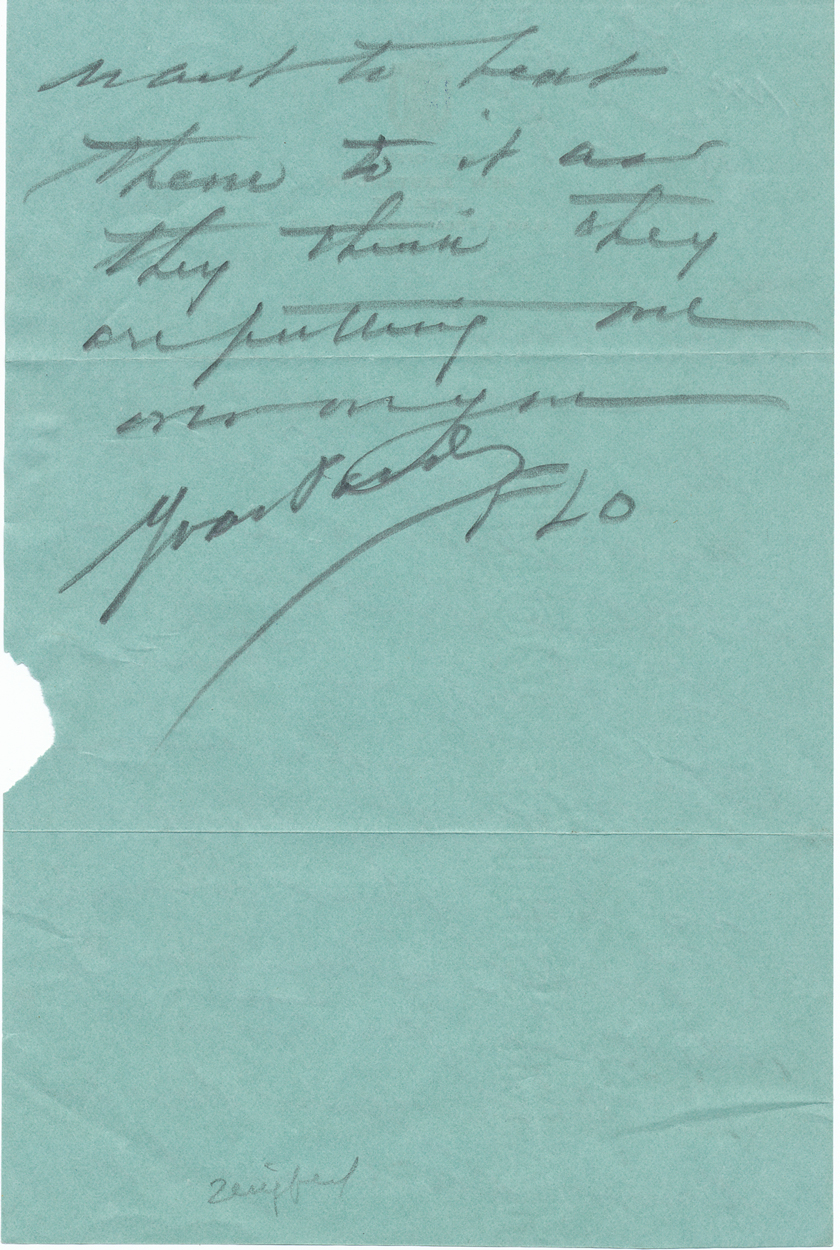 want to beat
them to it as
they think they
are putting one
over on you
Your Pard
FLO
Zeigfeld